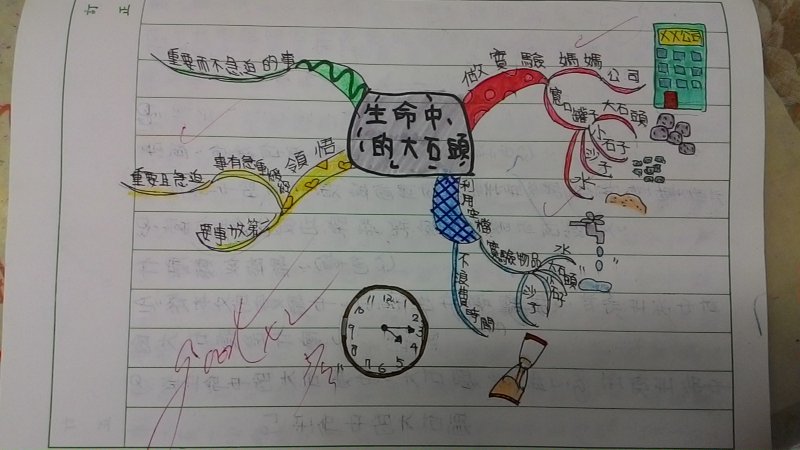 訂正
生命中
的大石頭
做實驗
媽媽
公司
XX公司
寬口
罐子
大石頭
小石子
沙子
水
利用空檔
實驗物品
水
石頭
石子
沙子
不浪費時間
領悟
事有急重緩
重要且急迫
要事放第一
重要而不急迫的事
11 12 1
10 2
9 3
8 4
7 6 5
good x2